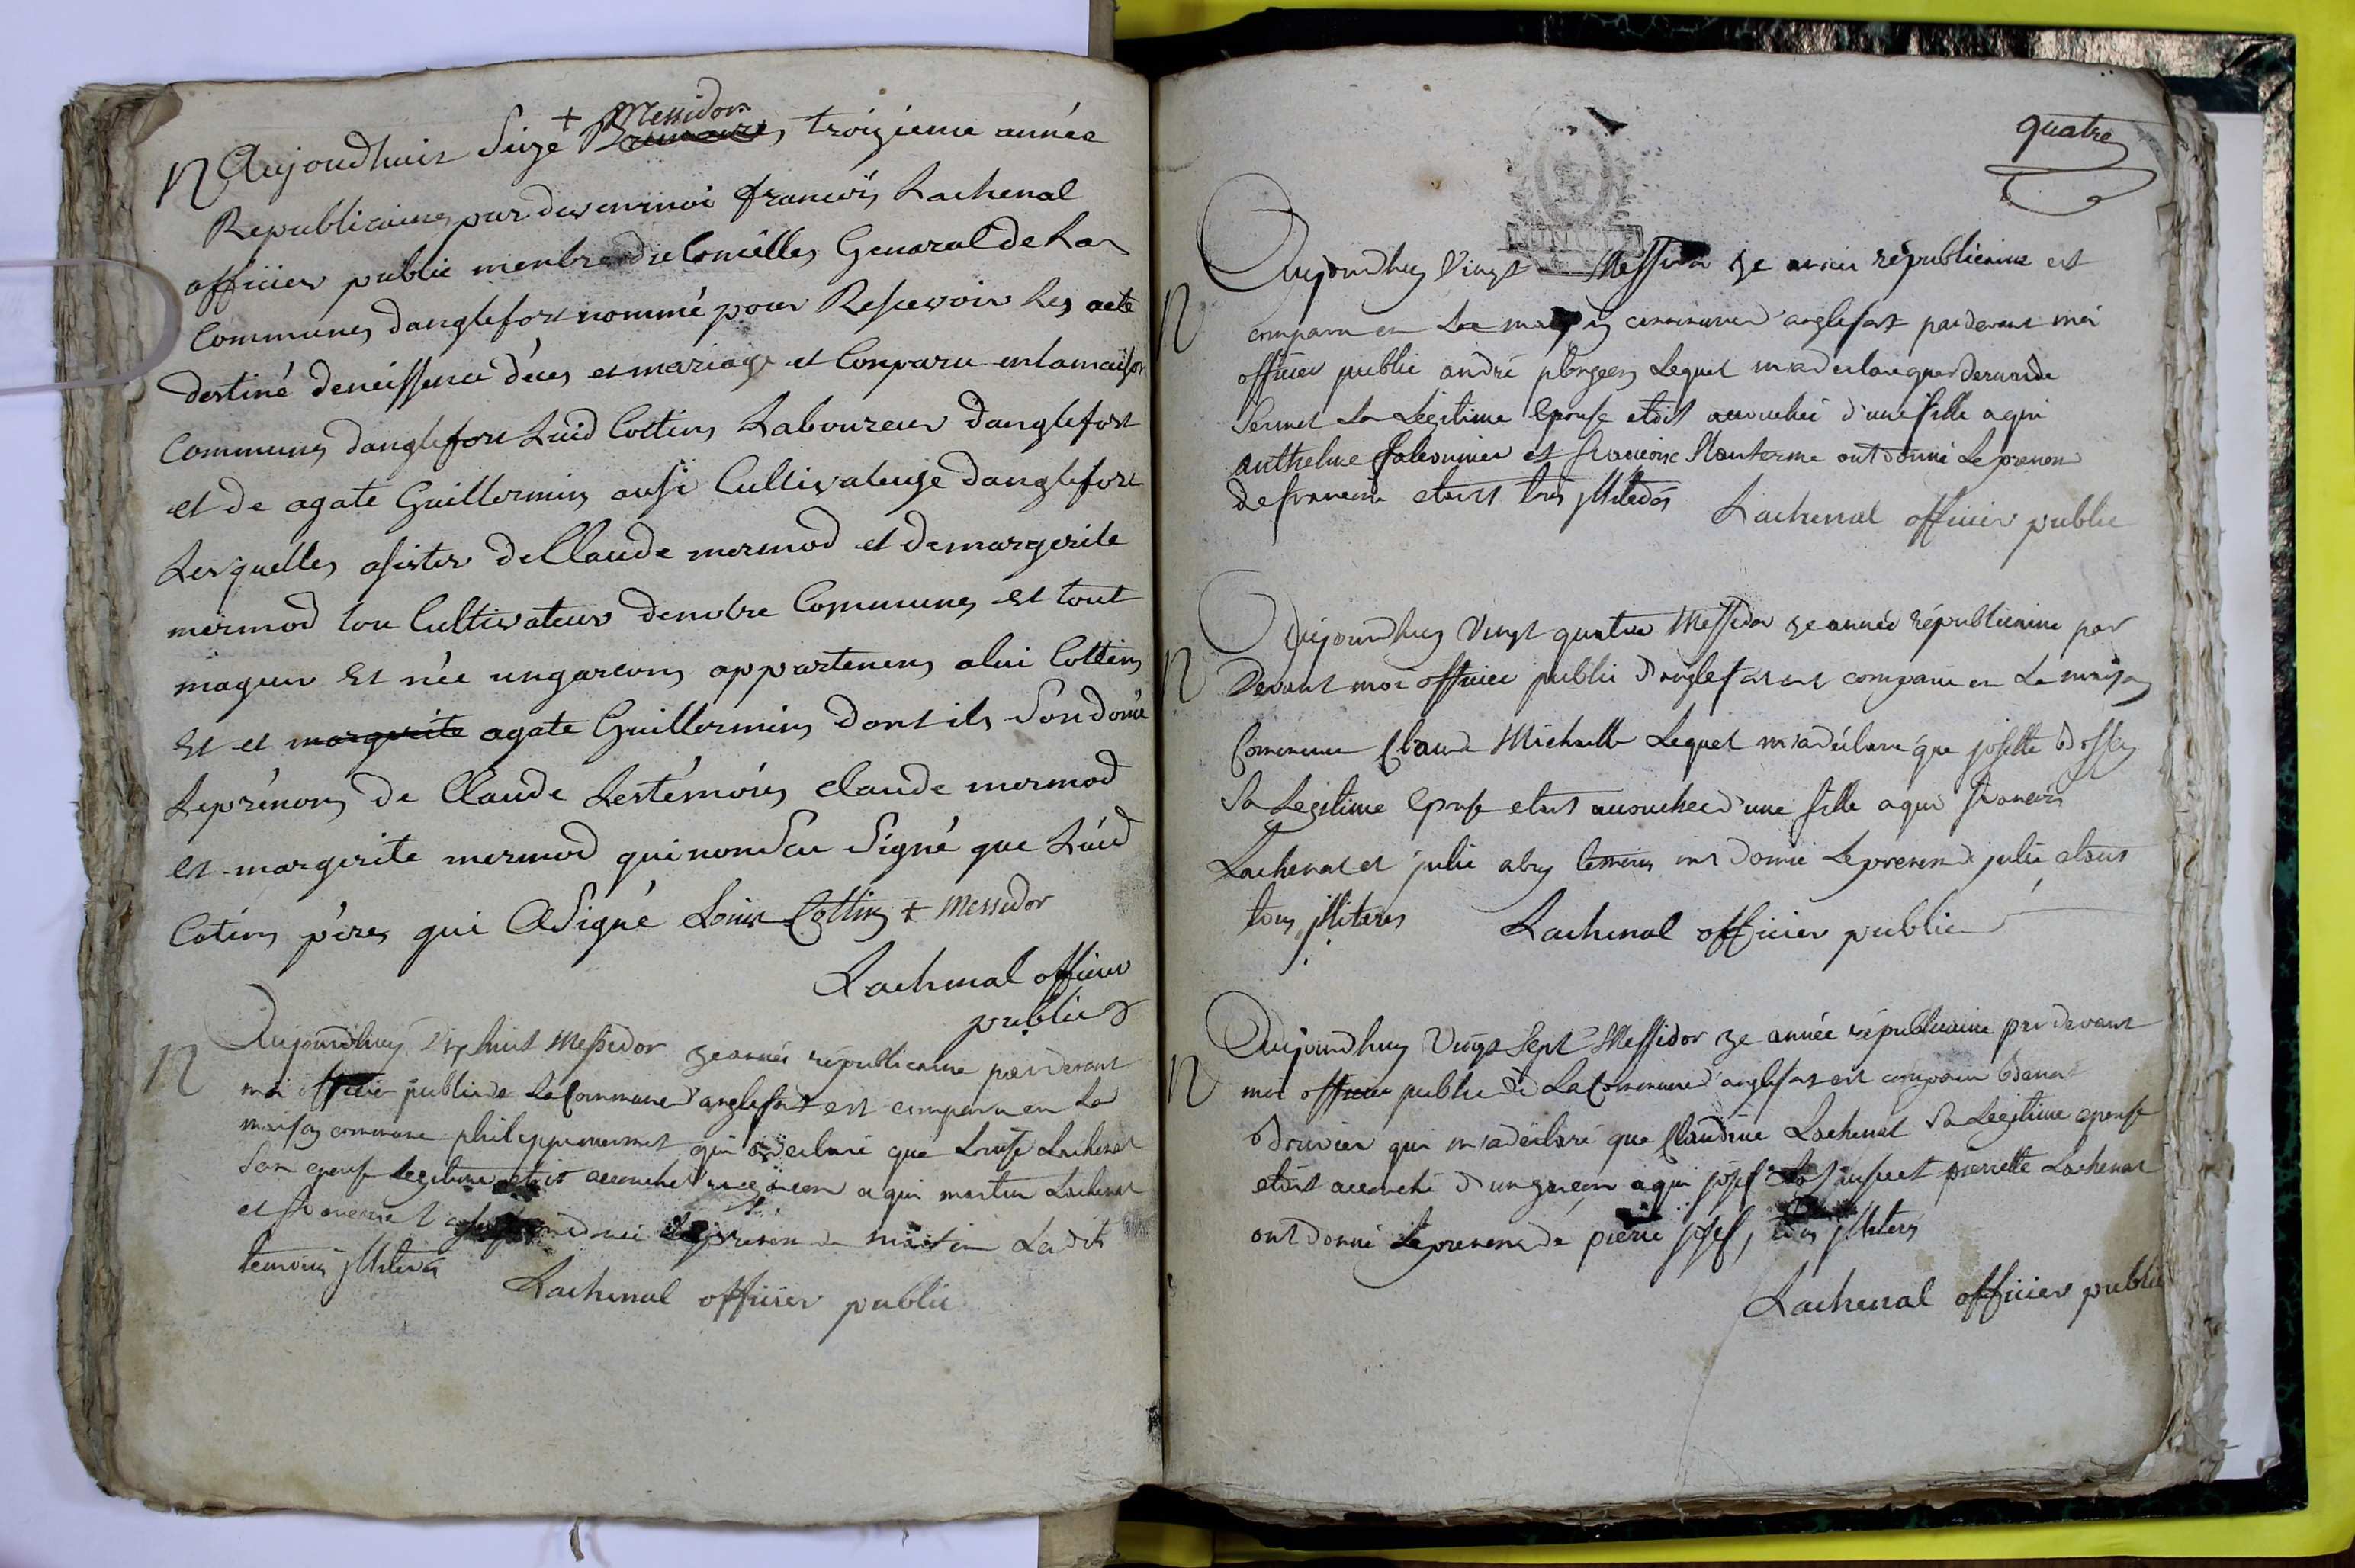 + Messidor
N Aujoudhuit Seize Brumaire, troizieme année
Republicaine par devenmoi francois Lachenal
officier public menbre du Conseille General de La
Commune danglefort nommé pour Rescevoir les acte
destiné deneissence déces et mariage et Conparu enlamaison
Commune danglefort Luid Cottin Laboureur Danglefort
et de agate Guillermin ausi Cultivateuse Danglefort
Lesquelles asister de Claude mermod et de margerite
mermod tou Cultivateur denotre Commune et tout
mageur Et née ungarcon appartenens alui Cottin
Et et margerite agate Guillermin Dont ils Son doné
Leprénom de Claude Lestémoins Claude mermod
et margerite mermod qui nonseu Signé que Luid
Cotin père qui a Signé Louis Cottin + Messidor
Lachenal officier
public
N Aujourdhuy Dix huit Messidor 3e année républicaine pardevant
moi officier public de La Commune danglefort est comparu en La
maison commune philippe mermet qui a déclaré que Louise Lachenal
Son epouse Legitime etoit accouché garcon a qui martin Lachenal
et donné Le prenom de martin Ladits
temoins jlliterés
Lachenal officier public
quatre
Aujourdhuy Vingt Messidor 3e année républicaine est
N comparu en La maison commune danglefort pardevant moi
officier public andré Lequel m'a déclaré que
Sa Légitime Epouse etoit accouchée d'une fille a qui
anthelme falconnier et francoise Manterme ont donné Le prenom
de francoise etants tous jlliterés
Lachenal officier public
Aujourdhuy Vingt quatre Messidor 3e année républicaine par
N Devant moi officier public danglefort est comparu en La maison
Commune Claude Michaille Lequel m'a déclaré que josette
Sa Legitime Epouse etoit accouchée d'une fille a qui francois
Lachenal et julie abry temoins ont donné Le prenom de julie etants
tous jlliterés
Lachenal officier public
Aujourdhuy Vingt Sept Messidor 3e année républicaine pardevant
N moi officier public de La Commune danglefort est comparu Benoit
Bouvier qui m'a déclaré que Claudine Lachenal Sa Legitime epouse
etoit accouché d'un garcon a qui josef et pierrette Lachenal
ont donné Le prenom de pierre josef, tous jlliterés
Lachenal officier public